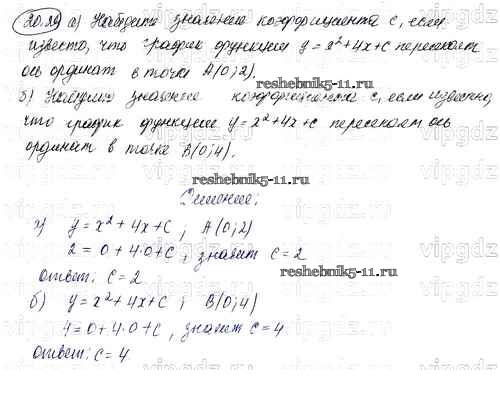 20.29 а) Найдите значение коэффициента c, если
известно, что график функции y = x² + 4x + c пересекает
ось ординат в точке A(0; 2).
reshebnik5-11.ru
б) Найдите значение коэффициента c, если известно,
что график функции y = x² + 4x + c пересекает ось
ординат в точке B(0; 4).
reshebnik5-11.ru
Решение:
а) y = x² + 4x + c ; A(0; 2)
2 = 0 + 4·0 + c , значит c = 2
ответ: c = 2
reshebnik5-11.ru
б) y = x² + 4x + c ; B(0; 4)
4 = 0 + 4·0 + c , значит c = 4
ответ: c = 4
vipgdz